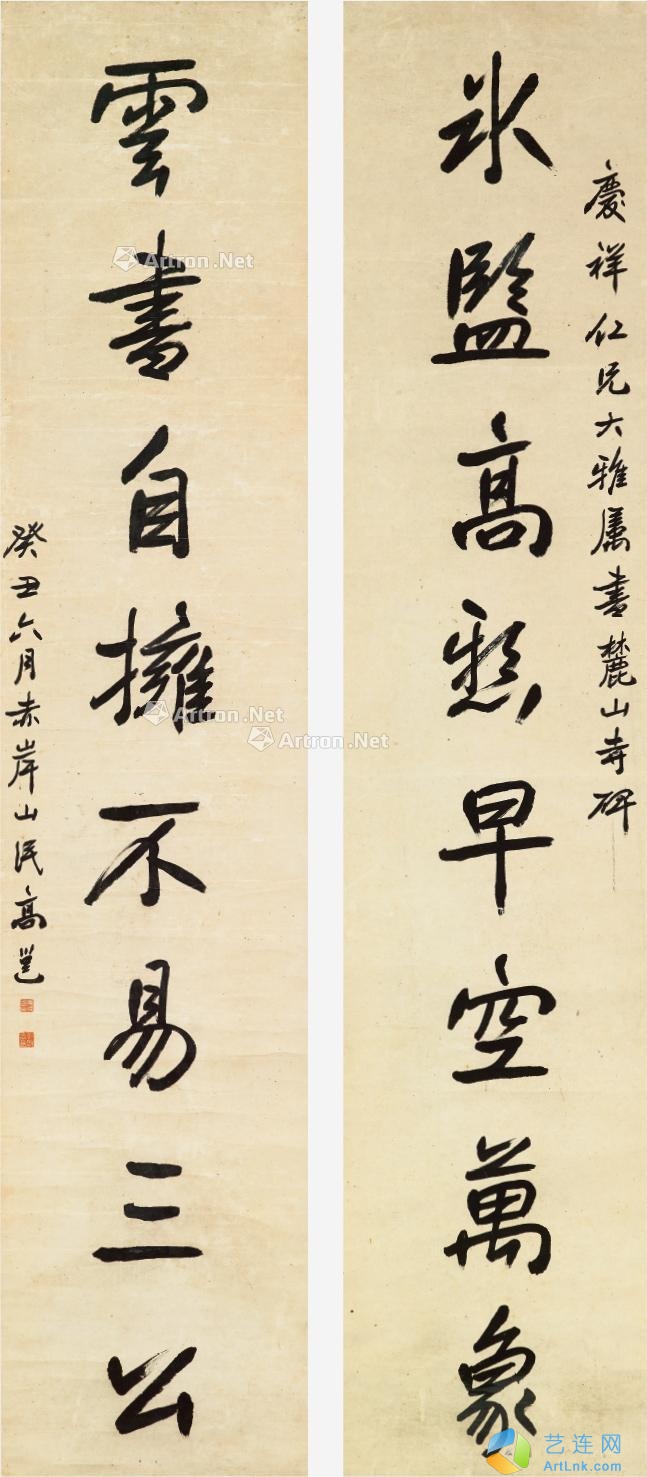 慶祥仁兄大雅屬書麓山寺碑
冰監高懸早空萬象
雲書自擁不易三公
癸丑六月赤岸山民高邕
Artron.Net
Artron.Net
Artron.Net
艺连网
ArtLnk.com